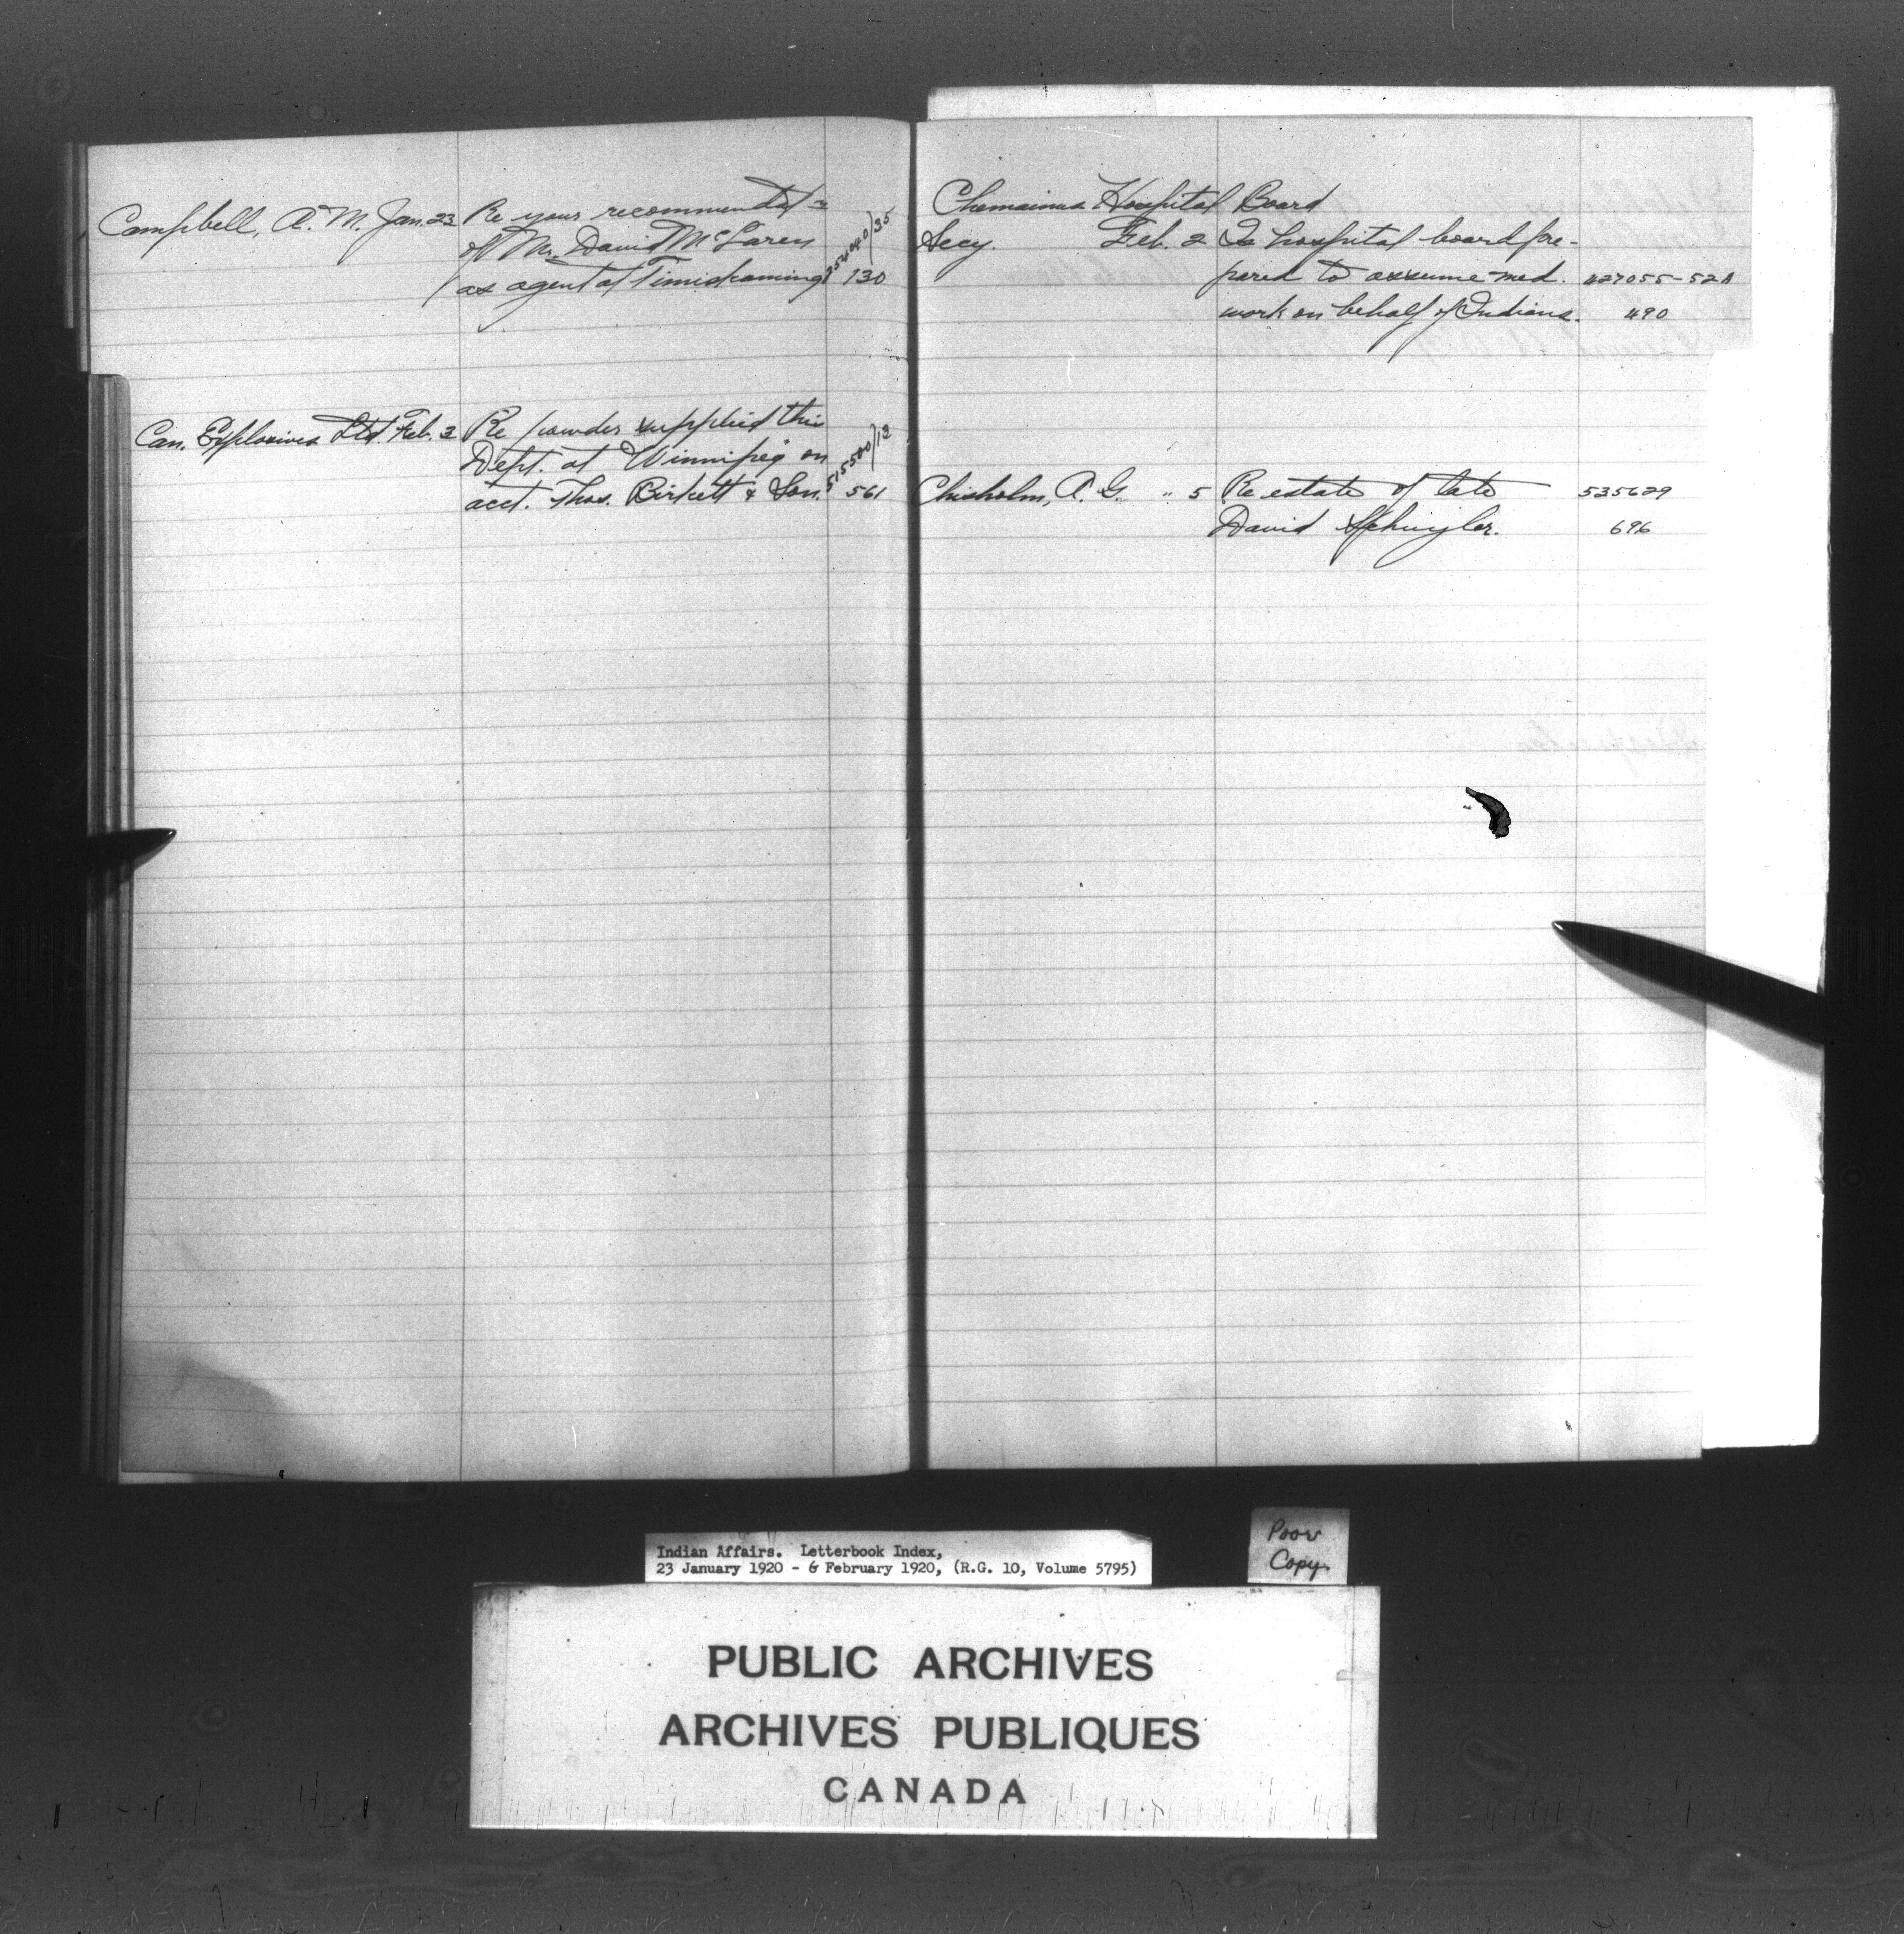 Campbell, A. M. Jan. 23
Re your recommendat=
of Mr. David McLaren
as agent at Timiskaming
254040/35
130
Can. Explosives Ltd. Feb. 3
Re powder supplied this
Dept. at Winnipeg on
acct. Thos. Birkett & Son.
515500/12
561
Chemainus Hospital Board
Secy. Feb. 2 Is hospital board pre-
pared to assume med. 427055-52A
work on behalf of Indians. 490
Chisholm, A. G. " 5 Re estate of late 535629
David 696
Indian Affairs. Letterbook Index,
23 January 1920 - 6 February 1920, (R.G. 10, Volume 5795)
Poor
Copy
PUBLIC ARCHIVES
ARCHIVES PUBLIQUES
CANADA